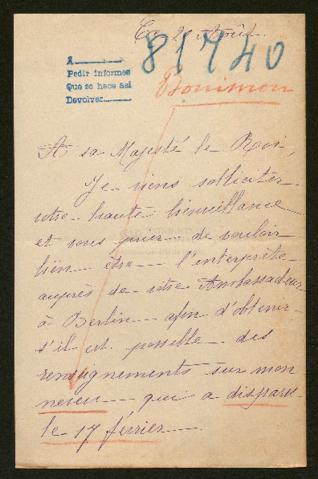 Ce 21 Août.
81740
A
Pedir informes
Que se hace así
Devolver
Bonimon
A sa Majesté le Roi,
Je viens solliciter
votre haute bienveillance
et vous prier de vouloir
bien être l'interprète
auprès de votre Ambassadeur
à Berlin afin d'obtenir
s'il est possible des
renseignements sur mon
neveu qui a disparu
le 17 février